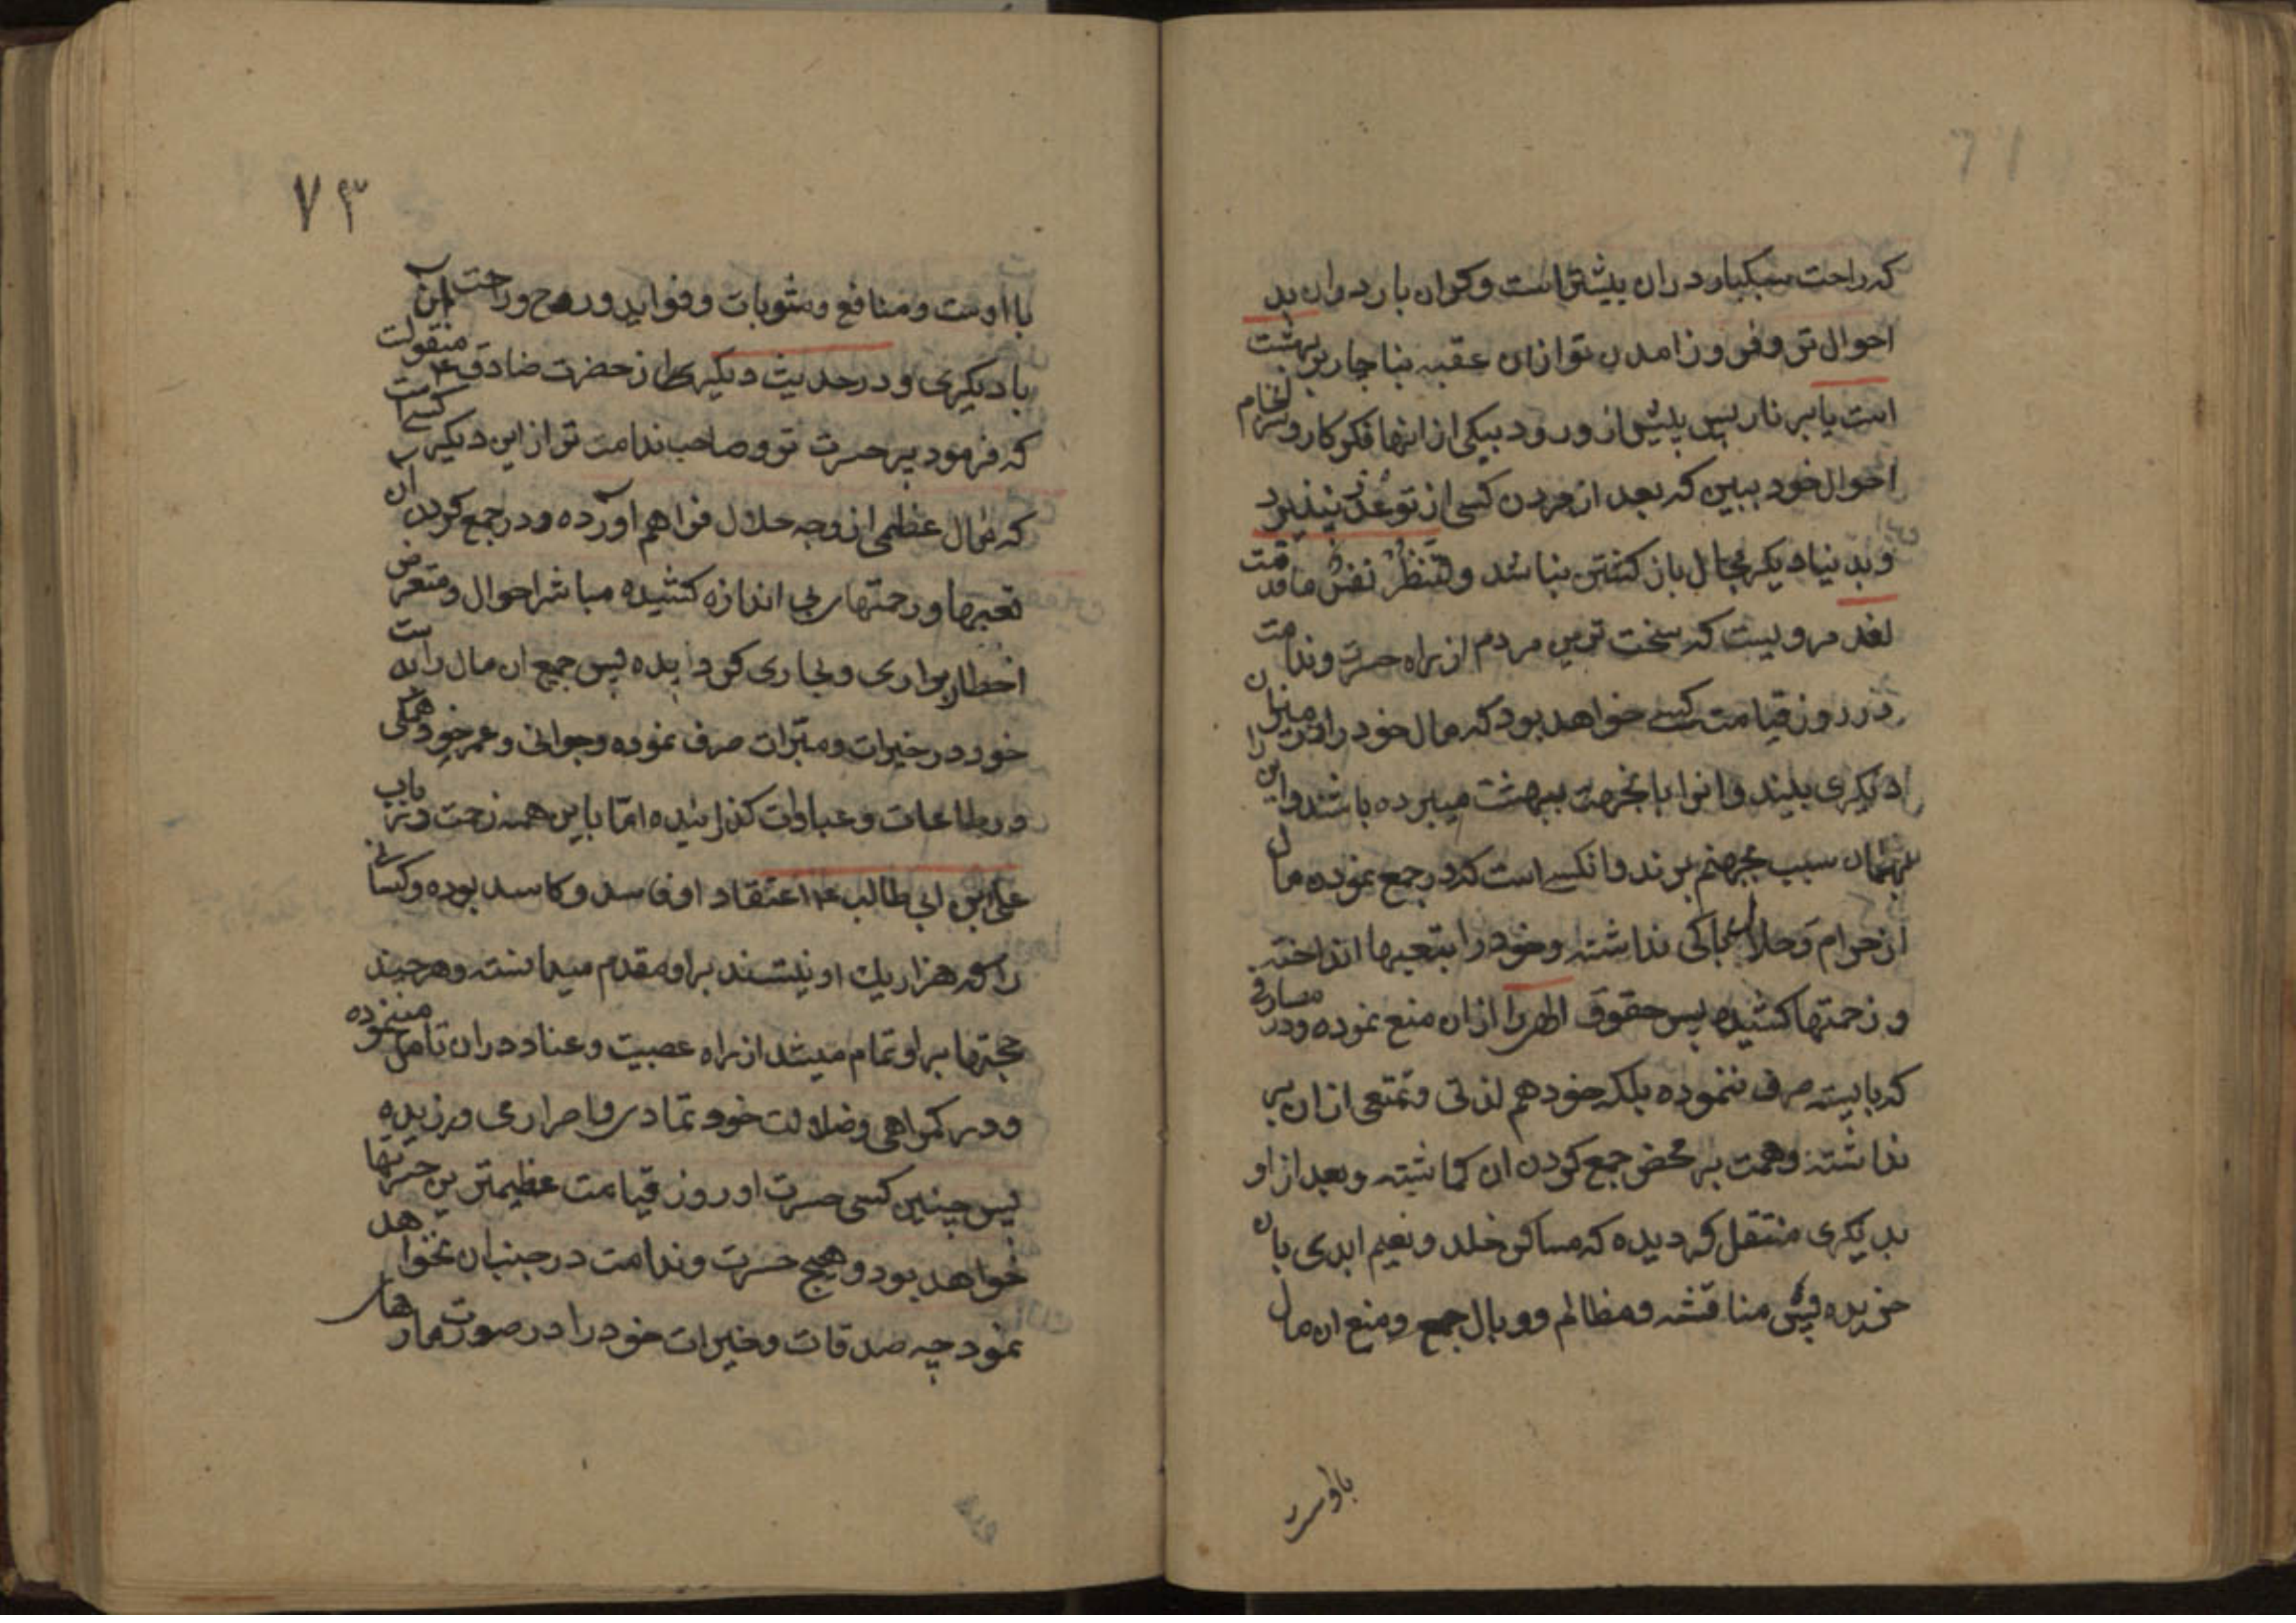 که راحت سبکبار دران بیشتر است وکران بار دران بد
احوال تر وفرو زامدن تو ازان عقبه بناچار بر بهشت
است یا بر نار پس پیش از ورود بیکی از اینها فکر کار و سرانجام
احوال خود ببین که بعد از مردن کسی از تو عذر نپذیرد
وبدنیا دیکر مجال باز کشتن نباشد ولتنظر نفس ما قدمت
لغد مرویست که سخت ترین مردم از راه حسرت وندامت
در روز قیامت کسے خواهد بود که مال خود را در میزان
دیکری بیند وانرا باینجهت ببهشت میبرده باشند واین را
بهمان سبب بجهنم برند وانکسے است که در جمع نموده مال
از حرام وحلال باکی نداشته وخود را بتعبها انداخته
و زحمتها کشیده پس حقوق الهی را ازان منع نموده ودر مصارفی
که بایسته صرف ننموده بلکه خود هم لذتی وتمتعی ازان بر
نداشته وهمت بر محض جمع کردن ان کماشته وبعد از او
بدیکری منتقل کردیده که مساکن خلد ونعیم ابدی بان
خریده پس مناقشه ومظالم ووبال جمع ومنع ان مال
باوست
۷۳
با اوست ومنافع ومثوبات وفواید وروح وراحت آن
با دیکری ودر حدیث دیکر از حضرت صادق ۴ منقولست
که فرمود پر حسرت تر وصاحب ندامت تر از این دیکر کسے است
که مال عظیمی از وجه حلال فراهم آورده ودر جمع کردن آن
تعبها وزحمتهای بی اندازه کشیده مباشر احوال ومتعرض
اخطار براری وبحاری کردیده پس جمع ان مال را بدست
خود در خیرات ومبرات صرف نموده وجوانی وعمر خود همکی
در طاعات وعبادات کذرانیده امّا با این همه زحمت در باب
علی ابن ابی طالب ۴ اعتقاد او فاسد وکاسد بوده وکسانی
را که هزار یك او نیستند بر او مقدم میدانسته وهر چند
حجتها بر او تمام میشد از راه عصبیت وعناد دران تامل مینموده
ودر کمراهی وضلالت خود تمادی واصراری ورزیده
پس چنین کسی حسرت او روز قیامت عظیمترین حسرتها
خواهد بود وهیچ حسرت وندامت در جنب ان نخواهد
نمود چه صدقات وخیرات خود را در صورت مارهای